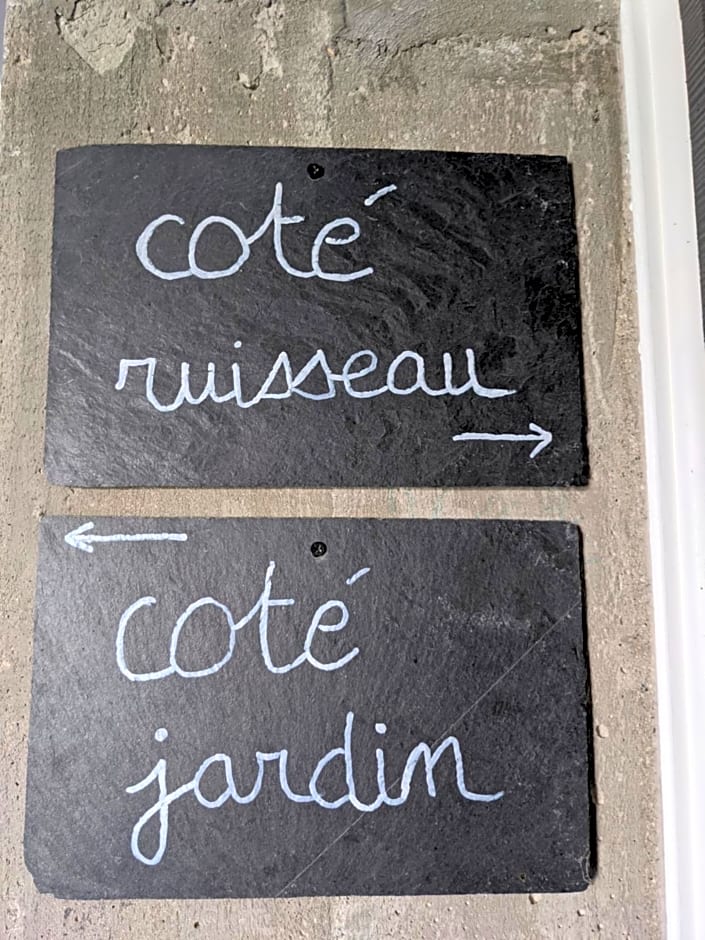 coté
ruisseau
→
←
coté
jardin